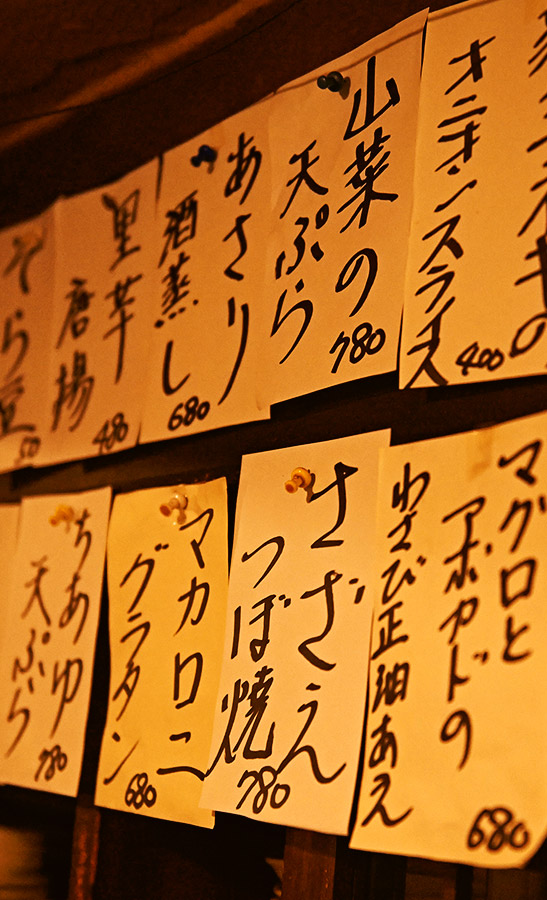 オニオンスライス
400
山菜の
天ぷら
780
あさり
酒蒸し
680
里芋
唐揚
480
そら豆
マグロと
アボカドの
わさび正油あえ
680
さざえ
つぼ焼
780
マカロニ
グラタン
680
ちあゆ
天ぷら
780